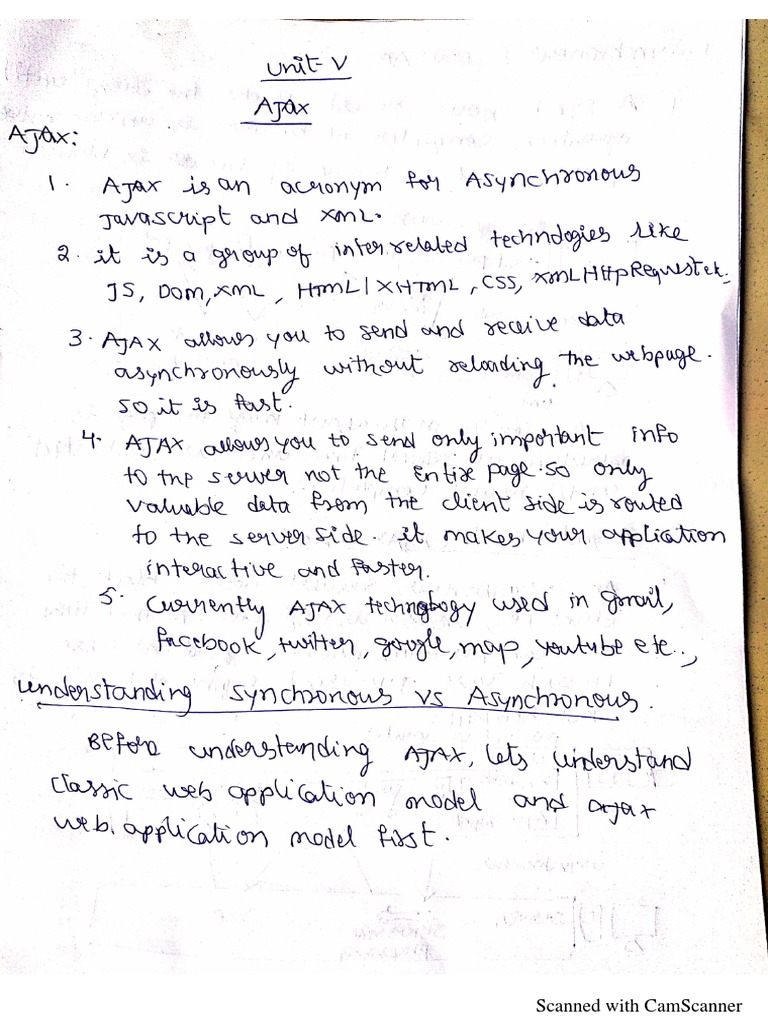 Unit-V
AJax
AJax:
1. AJAX is an acronym for Asynchronous
Javascript and XML.
2. it is a group of inter related technologies like
JS, DOM, XML, HTML/XHTML, CSS, XMLHttpRequest etc.
3. AJAX allows you to send and receive data
asynchronously without reloading the webpage.
so it is fast.
4. AJAX allows you to send only important info
to the server not the entire page. so only
valuable data from the client side is routed
to the server side. it makes your application
interactive and faster.
5. Currently AJAX technology used in gmail,
facebook, twitter, google, map, youtube etc..,
understanding synchronous vs Asynchronous.
Before understanding AJAX, lets understand
classic web application model and ajax
web. application model first.
Scanned with CamScanner